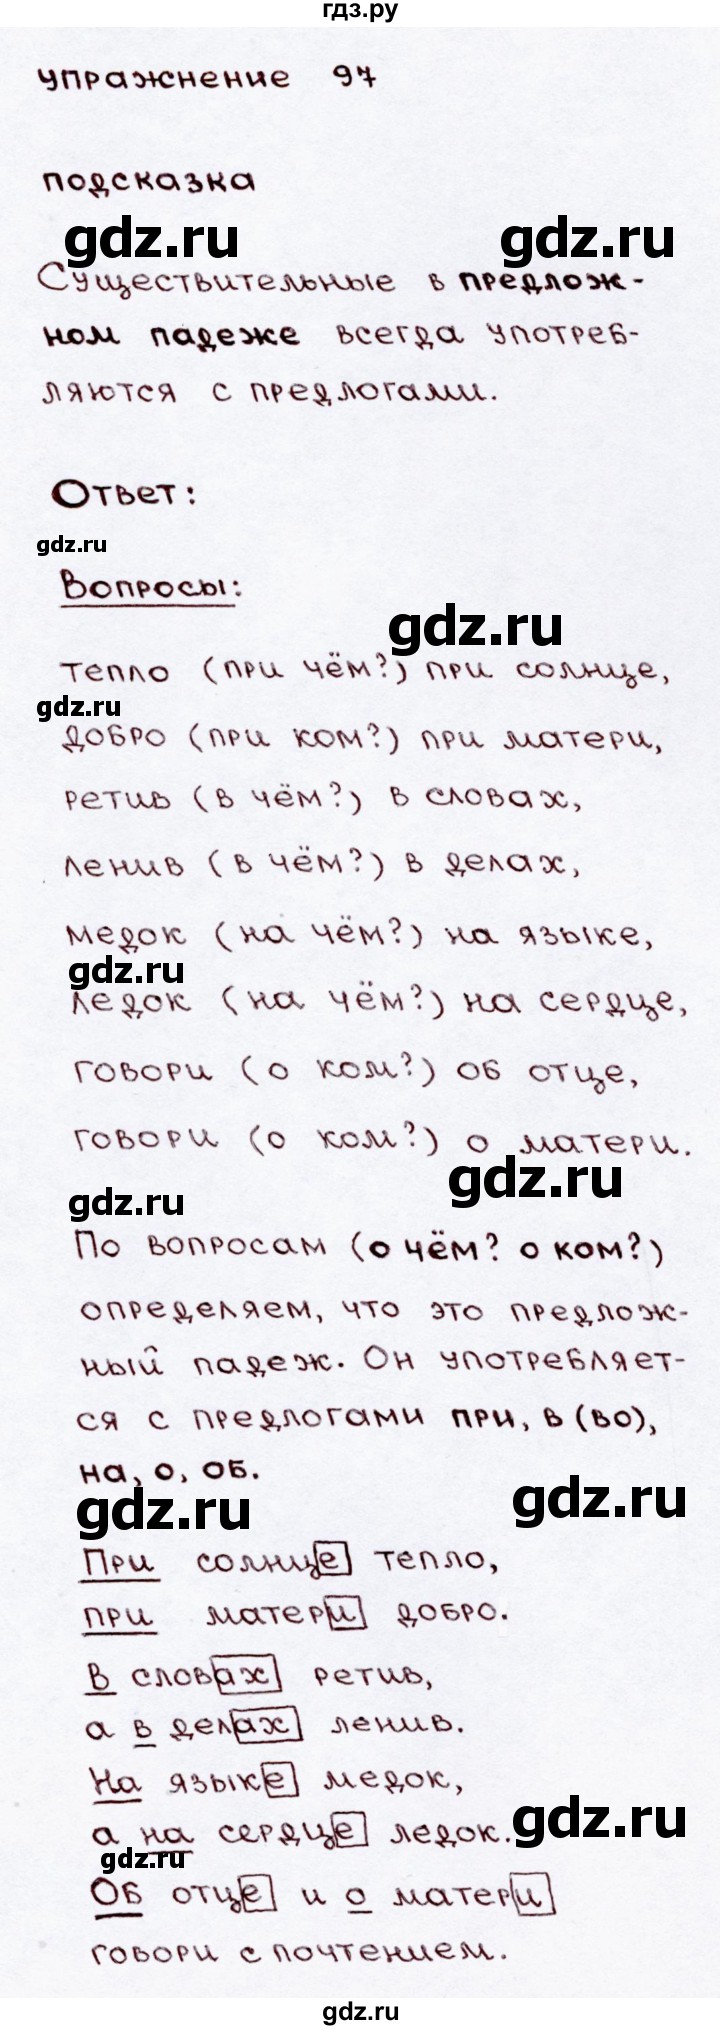 гдз.ру
упражнение 97
подсказка
gdz.ru gdz.ru
Существительные в предлож-
ном падеже всегда употреб-
ляются с предлогами.
Ответ:
gdz.ru
Вопросы:
gdz.ru
тепло (при чём?) при солнце,
gdz.ru
добро (при ком?) при матери,
ретив (в чём?) в словах,
ленив (в чём?) в делах,
медок (на чём?) на языке,
gdz.ru
ледок (на чём?) на сердце,
говори (о ком?) об отце,
говори (о ком?) о матери.
gdz.ru
gdz.ru
По вопросам (о чём? о ком?)
определяем, что это предлож-
ный падеж. Он употребляет-
ся с предлогами при, в (во),
на, о, об.
gdz.ru gdz.ru
При солнце тепло,
при матери добро.
В словах ретив,
а в делах ленив.
На языке медок,
gdz.ru
а на сердце ледок.
gdz.ru
Об отце и о матери
говори с почтением.
gdz.ru